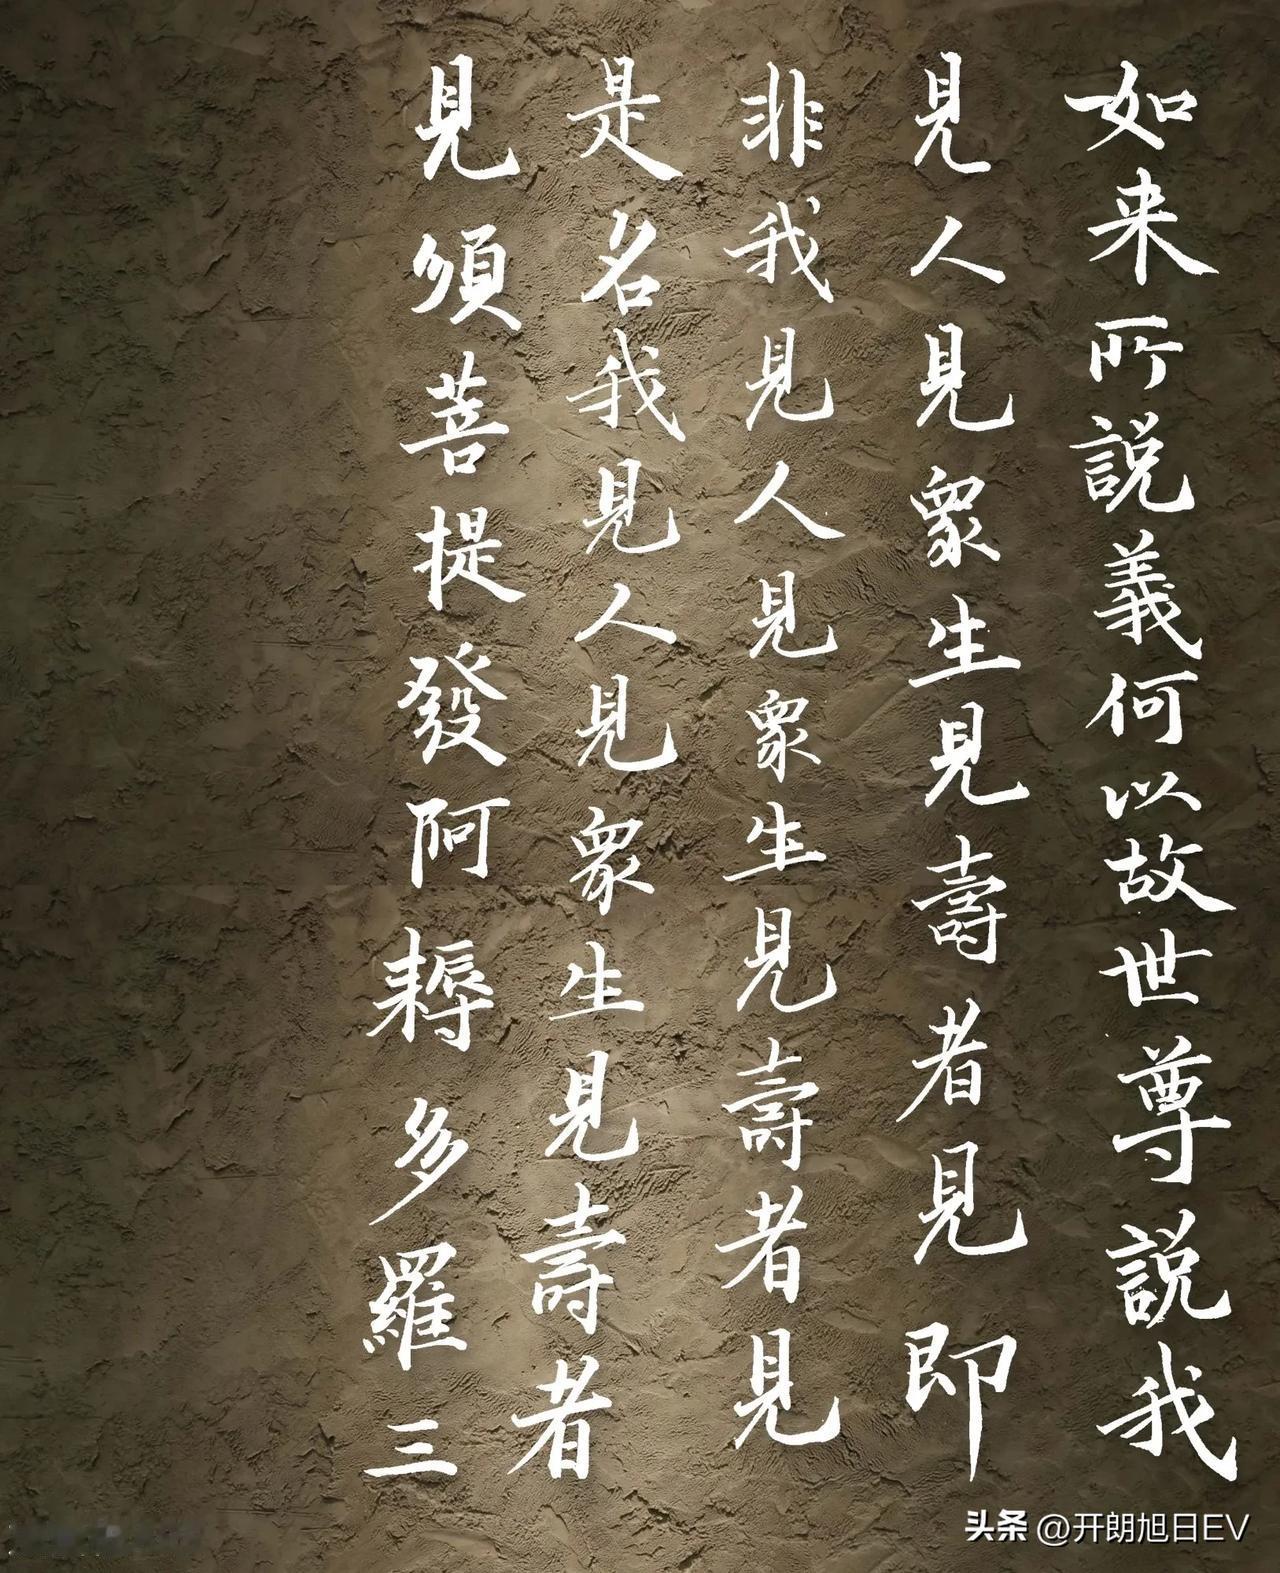 如来所説義何以故世尊説我
見人見衆生見壽者見即
非我見人見衆生見壽者見
是名我見人見衆生見壽者
見須菩提發阿耨多羅三
头条 @开朗旭日EV